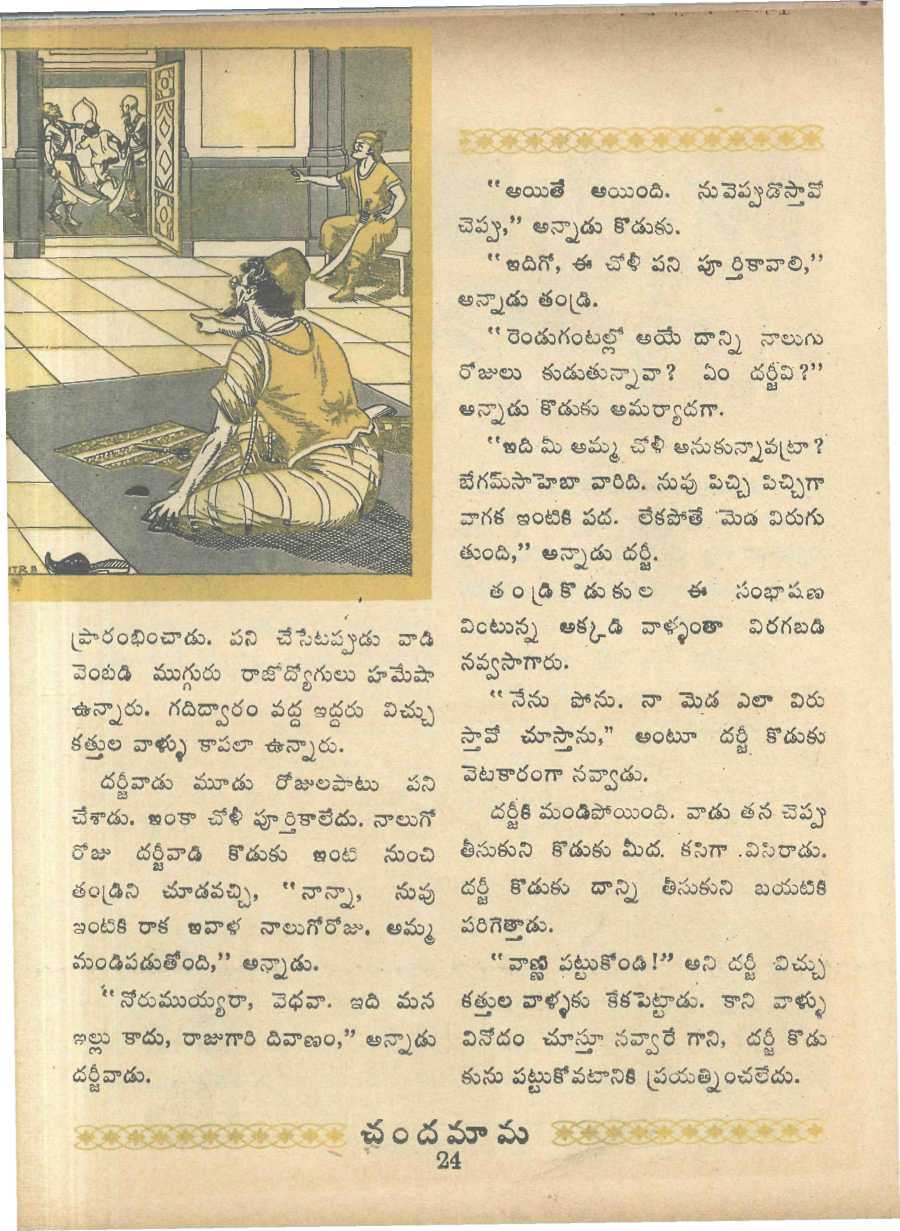 ప్రారంభించాడు. పని చేసేటప్పుడు వాడి
వెంబడి ముగ్గురు రాజోద్యోగులు హమేషా
ఉన్నారు. గదిద్వారం వద్ద ఇద్దరు విచ్చు
కత్తుల వాళ్ళు కాపలా ఉన్నారు.
దర్జీవాడు మూడు రోజులపాటు పని
చేశాడు. ఇంకా చోళీ పూర్తికాలేదు. నాలుగో
రోజు దర్జీవాడి కొడుకు ఇంటి నుంచి
తండ్రిని చూడవచ్చి, “నాన్నా, నువు
ఇంటికి రాక ఇవాళ నాలుగోరోజు. అమ్మ
మండిపడుతోంది,” అన్నాడు.
“నోరుముయ్యరా, వెధవా. ఇది మన
ఇల్లు కాదు, రాజుగారి దివాణం,” అన్నాడు
దర్జీవాడు.
“అయితే అయింది. నువెప్పుడొస్తావో
చెప్పు,” అన్నాడు కొడుకు.
“ఇదిగో, ఈ చోళీ పని పూర్తికావాలి,”
అన్నాడు తండ్రి.
“రెండుగంటల్లో అయే దాన్ని నాలుగు
రోజులు కుడుతున్నావా? ఏం దర్జీవి?”
అన్నాడు కొడుకు అమర్యాదగా.
“ఇది మీ అమ్మ చోళీ అనుకున్నావట్రా?
బేగమ్‌సాహెబా వారిది. నువు పిచ్చి పిచ్చిగా
వాగక ఇంటికి పద. లేకపోతే మెడ విరుగు
తుంది,” అన్నాడు దర్జీ.
తండ్రికొడుకుల ఈ సంభాషణ
వింటున్న అక్కడి వాళ్ళంతా విరగబడి
నవ్వసాగారు.
“నేను పోను. నా మెడ ఎలా విరు
స్తావో చూస్తాను,” అంటూ దర్జీ కొడుకు
వెటకారంగా నవ్వాడు.
దర్జీకి మండిపోయింది. వాడు తన చెప్పు
తీసుకుని కొడుకు మీద కసిగా విసిరాడు.
దర్జీ కొడుకు దాన్ని తీసుకుని బయటికి
పరిగెత్తాడు.
“వాణ్ణి పట్టుకోండి!” అని దర్జీ విచ్చు
కత్తుల వాళ్ళకు కేకపెట్టాడు. కాని వాళ్ళు
వినోదం చూస్తూ నవ్వారే గాని, దర్జీ కొడు
కును పట్టుకోవటానికి ప్రయత్నించలేదు.
చందమామ
24